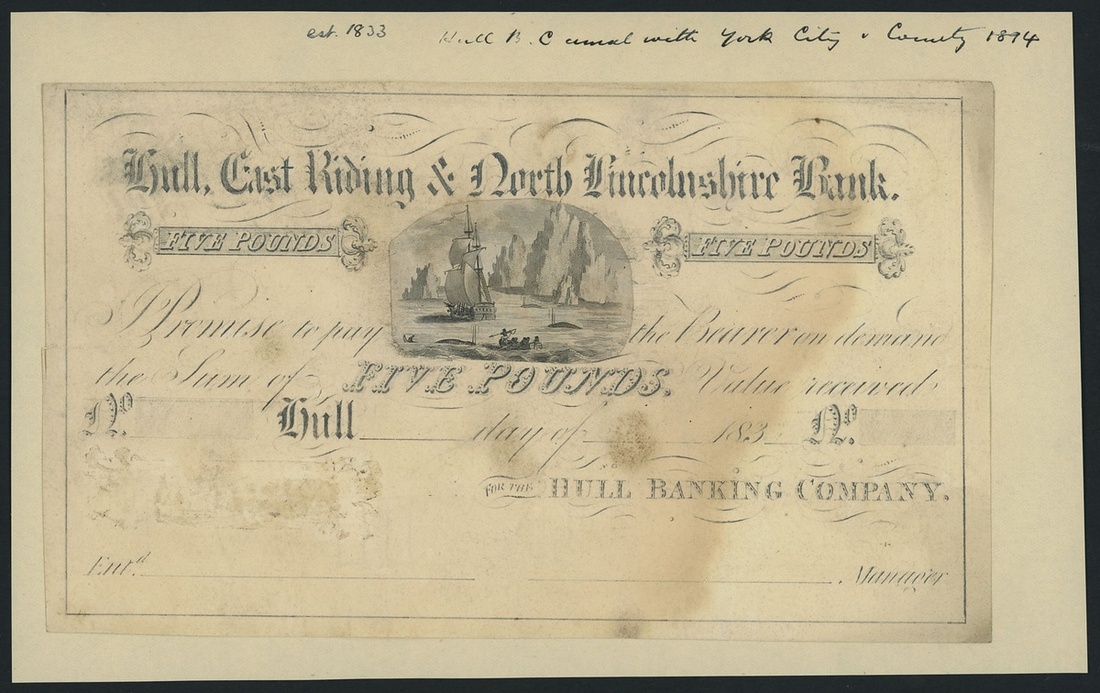 est. 1833 Hull B. C amal with York City & County 1894
Hull, East Riding & North Lincolnshire Bank.
FIVE POUNDS FIVE POUNDS
I Promise to pay the Bearer on demand
the Sum of FIVE POUNDS. Value received
No. Hull day of 183 No.
FOR THE HULL BANKING COMPANY.
Entd. Manager